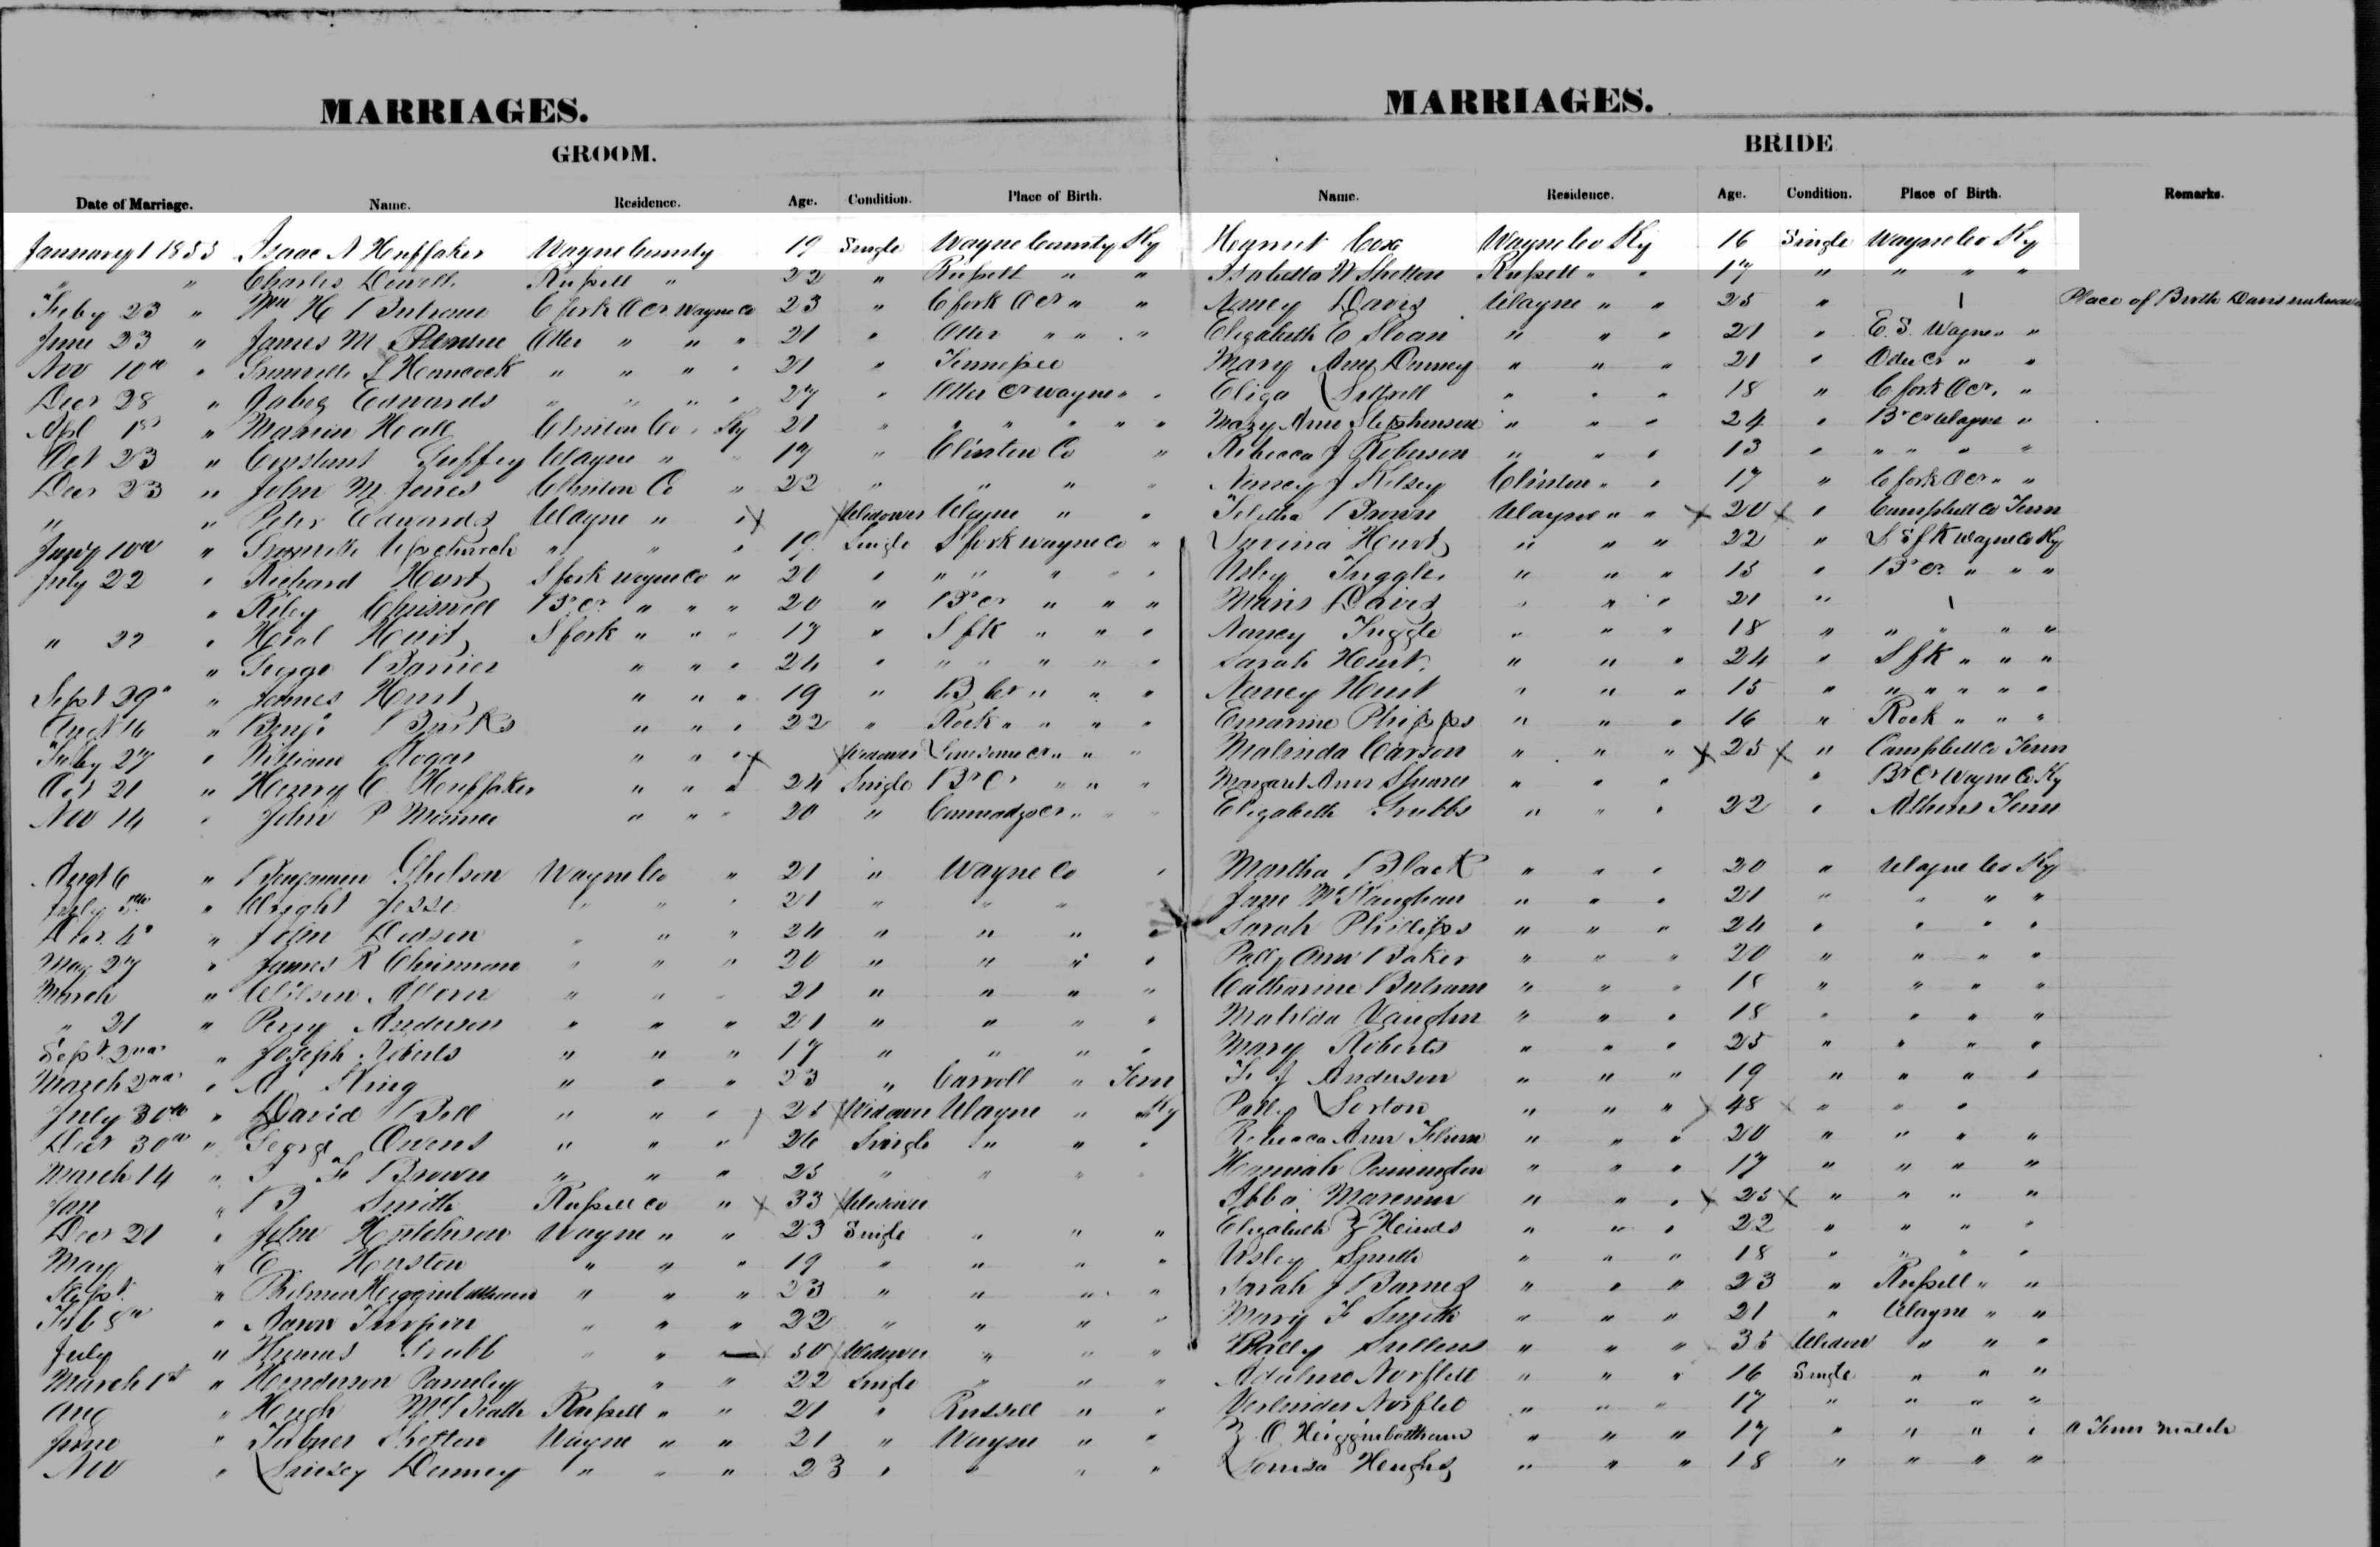 MARRIAGES. MARRIAGES.
GROOM. BRIDE
Date of Marriage. Name. Residence. Age. Condition. Place of Birth. Name. Residence. Age. Condition. Place of Birth. Remarks.
January 1 1853 Isaac N Huffaker Wayne County 19 Single Wayne County Ky Harriet Cox Wayne Co Ky 16 Single Wayne Co Ky
" " Charles Dowell Russell " 22 " Russell " " Isabella W Shelton Russell " " 17 " " " "
Feby 23 " Wm H Butram C fork O Cr Wayne Co 23 " C fork O Cr " " Nancy Davis Wayne " " 25 " Place of Birth Davis unknown
June 23 " James M Otter " " " 21 " Otter " " " Elizabeth E Sloan " " " 21 " E. S. Wayne " "
Nov 10th " Granville L Hancock " " " " 21 " Tennessee Mary Ann Denney " " " 21 " " "
Decr 28 " Jabez Edwards " " " " 27 " Otter Cr Wayne " " Eliza Littrell " " " 18 " C fork O Cr. "
Apl 1st " Marion Hall Clinton Co " Ky 21 " " " " " " Mary Ann Stephenson " " " 24 " Br Cr Wayne "
Oct 23 " Constant Guffey Wayne " " 17 " Clinton Co " Rebecca J Roberson " " " 13 " " " " "
Decr 23 " John M Jones Clinton Co " 22 " " " " Nancy J Kelsey Clinton " " 17 " C fork O Cr " "
" " Peter Edwards Wayne " " x x Widower Wayne " " Telitha Brown Wayne " " x 20 x " Campbell Co Tenn
10th " Granville Upchurch " " " 19 Single S fork Wayne Co " Lavina Hurt " " " 22 " L S fk Wayne Co Ky
July 22 " Richard Hurt S fork Wayne Co " 20 " " " " " " Usley Tuggle " " " 15 " Br Cr " " "
" Riley Chriswell Br Cr " " " 20 " Br Cr " " " Davis " " " 21 "
" 22 " Hurt S fork " " " 17 " S fk " " " Nancy Tuggle " " " 18 " " " " "
" George Barrier " " " 24 " " " " " " Sarah Hurt " " " 24 " S fk " " "
Sept 29th " James Hurt " " " 19 " B Cr " " " Nancy Hurt " " " 15 " " " " " "
Augt 16 " Benj. Burks " " " 22 " Rock " " " " Emarine Phipps " " " 16 " Rock " " "
Feby 27 " William Rogar " " " x x Widower Lonesome Cr " " " Malinda Carson " " " x 25 x " Campbell Co Tenn
Oct 21 " Henry C Huffaker " " " 24 Single Br Cr " " " Margaret Ann " " " " Br Cr Wayne Co Ky
Nov 14 " John P " " " 20 " " " " Elizabeth Grubbs " " " 22 " Athens Tenn
Augt 6 " Benjamin Wayne Co " 21 " Wayne Co " Martha Black " " " 20 " Wayne Co Ky
July 5th " Wright Jesse " " " 21 " " " Jane " " " 21 " " " "
Decr. 4th " John Dodson " " " 24 " " " " Sarah Phillips " " " 24 " " " "
May 27 " James R Chrisman " " " 20 " " " " Polly Ann Baker " " " 20 " " " "
March " Wilson " " " 21 " " " " Catharine Butram " " " 18 " " " "
" 21 " Perry Anderson " " " 21 " " " " Matilda Vaughn " " " 18 " " " "
Sept. 2nd " Joseph Roberts " " " 17 " " " " Mary Roberts " " " 25 " " " "
March 2nd " " " " 23 " Carroll " Tenn F J Anderson " " " 19 " " " "
July 30th " David Bell " " " 25 Widower Wayne " Ky Patty Lorton " " " x 48 x " " "
Decr 30th " George Owens " " " 26 Single " " " Rebecca Ann " " " 20 " " " "
March 14 " F Brown " " " 25 " " " Hannah Pennington " " " 17 " " " "
Jan " B Smith Russell Co " x 33 x Widower " " " x 25 x " " " "
Decr 21 " John Hutchison Wayne " " 23 Single " " " Elizabeth Z Heinds " " " 22 " " " "
May " E Huston " " " 19 " " " " Usley Smith " " " 18 " " " "
Sept. " Higginbotham " " " 23 " " " " Sarah J Barnes " " " 23 " Russell " "
Feb 8th " Aaron Turpin " " " 22 " " " " Mary F Smith " " " 21 " Wayne " "
July " Thomas Grubb " " 50 Widower " " " Polly Sullens " " " 35 Widow " " "
March 1st " Henderson Parmley " " 22 Single " " " Adaline Norfleet " " " 16 Single " " "
Aug " Hugh Russell " " 21 " Russell " " Verlinder Norflet " " " 17 " " " "
June " Tubner Shelton Wayne " " 21 " Wayne " " Z O Higginbotham " " " 17 " " " " A Tenn match
Nov " Denney " " " 23 " " " " Louisa Hughs " " " 18 " " " "